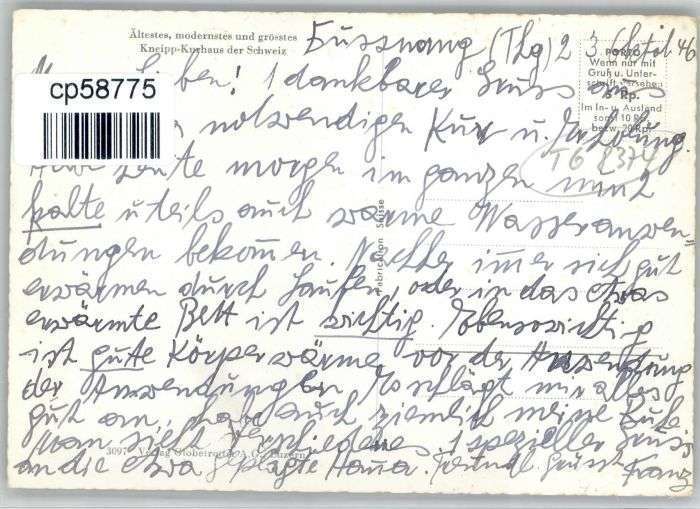 Ältestes, modernstes und grösstes
Kneipp-Kurhaus der Schweiz
Dussnang (Thg) 2 3 46
PORTO
Wenn nur mit
Gruß u. Unter-
schrift versehen
5 Rp.
Im In- u. Ausland
sonst 10 Rp.
bezw. 20 Rp.
ben! 1 dankbaren Gruss aus
cp58775
notwendigen Kur u. Erholung.
TG 8374
Habe heute morgen im ganzen
kalte u teils auch warme Wasseranwen-
dungen bekommen. Nachher immer sich gut
Fabrication Suisse
erwärmen durch Laufen, oder in das etwas
erwärmte Bett ist wichtig. Ebensowichtig
ist gute Körperwärme vor der Anwendung
der Anwendungen. Es schlägt mir alles
gut an, habe auch ziemlich meine Ruhe
Man sieht verschiedenes 1 spezieller Gruss
3097 Verlag Globetrotter A.G. Luzern
an die etwa geplagte Hanna. Freundl grüsst Franz